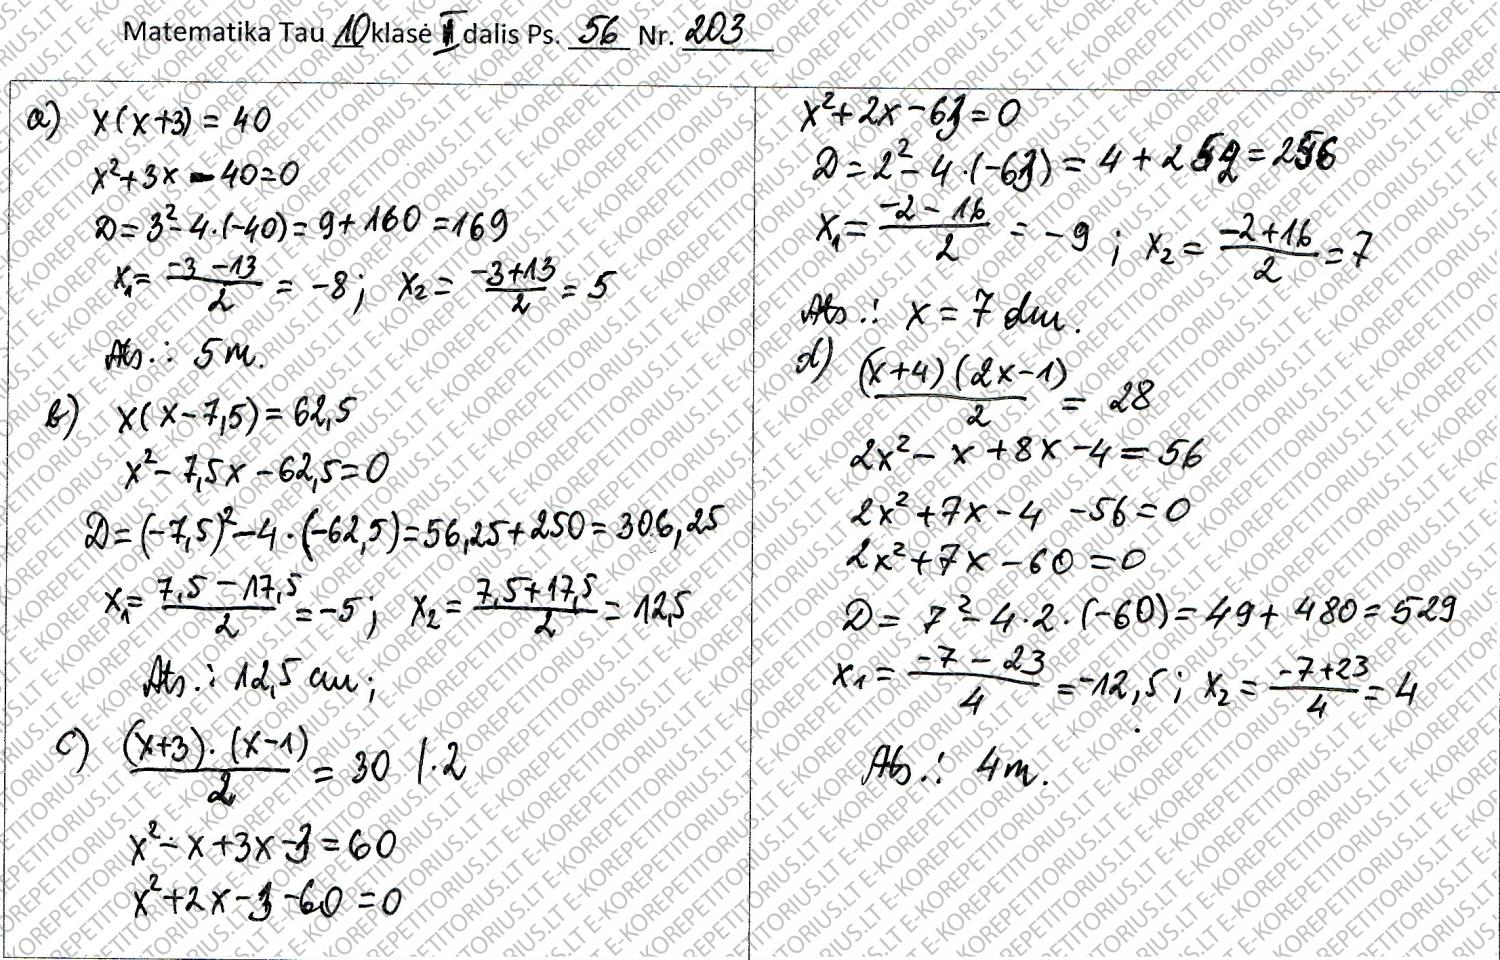 Matematika Tau 10 klasė II dalis Ps. 56 Nr. 203
a) x(x+3) = 40
x²+3x - 40=0
D= 3²-4·(-40)= 9+160=169
x₁= (-3-13)/2 = -8; x₂= (-3+13)/2 = 5
Ats.: 5 m.
b) x(x-7,5)= 62,5
x²-7,5x-62,5=0
D=(-7,5)²-4·(-62,5)=56,25+250=306,25
x₁= (7,5-17,5)/2 = -5; x₂= (7,5+17,5)/2 = 12,5
Ats.: 12,5 cm;
c) ((x+3)·(x-1))/2 = 30 |·2
x²-x+3x-3=60
x²+2x-3-60=0
x²+2x-63=0
D=2²-4·(-63)=4+252=256
x₁= (-2-16)/2 = -9; x₂= (-2+16)/2 = 7
Ats.: x=7 dm.
d) ((x+4)(2x-1))/2 = 28
2x²-x+8x-4=56
2x²+7x-4-56=0
2x²+7x-60=0
D= 7²-4·2·(-60)=49+480=529
x₁= (-7-23)/4 = -12,5; x₂= (-7+23)/4 = 4
Ats.: 4 m.
E-KOREPETITORIUS.LT